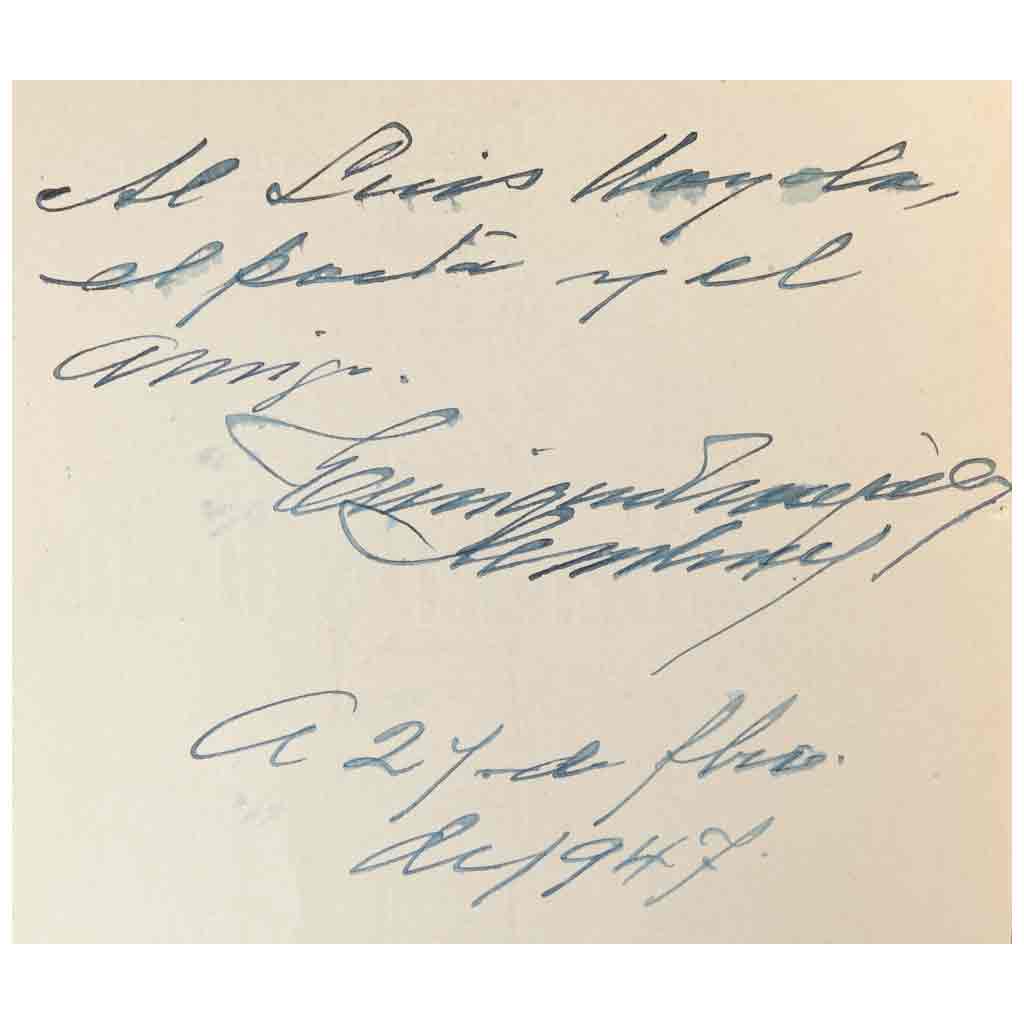 Al Luis Noyola,
el poeta y el
amigo.
A 27. de fbro.
de 1947.